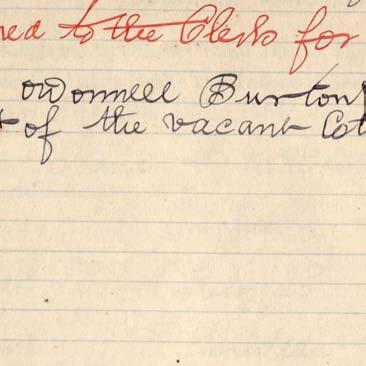 red to the Clerk for
O'Donnell Burton
t of the vacant Cot